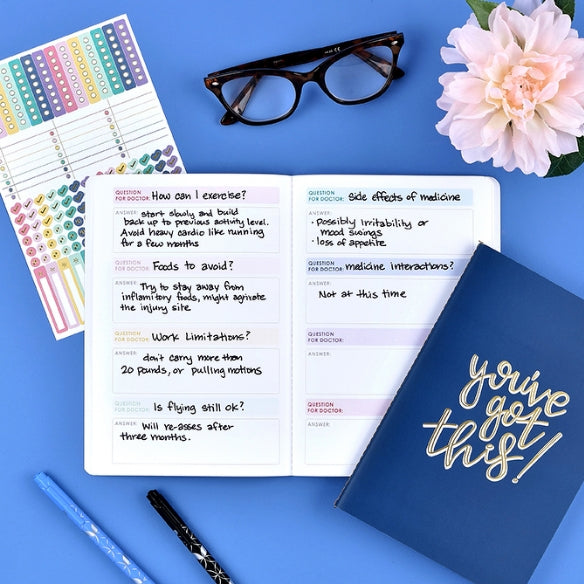 QUESTION
FOR DOCTOR: How can I exercise?
ANSWER: start slowly and build
back up to previous activity level.
Avoid heavy cardio like running
for a few months
QUESTION
FOR DOCTOR: Foods to avoid?
ANSWER: Try to stay away from
inflamitory foods, might agrivate
the injury site
QUESTION
FOR DOCTOR: Work Limitations?
ANSWER: don't carry more than
20 pounds, or pulling motions
QUESTION
FOR DOCTOR: Is flying still ok?
ANSWER: Will re-asses after
three months.
QUESTION
FOR DOCTOR: Side effects of medicine
ANSWER:
• Possibly irritability or
mood swings
• loss of appetite
QUESTION
FOR DOCTOR: medicine interactions?
ANSWER:
Not at this time
QUESTION
FOR DOCTOR:
ANSWER:
QUESTION
FOR DOCTOR:
ANSWER:
you've
got
this!